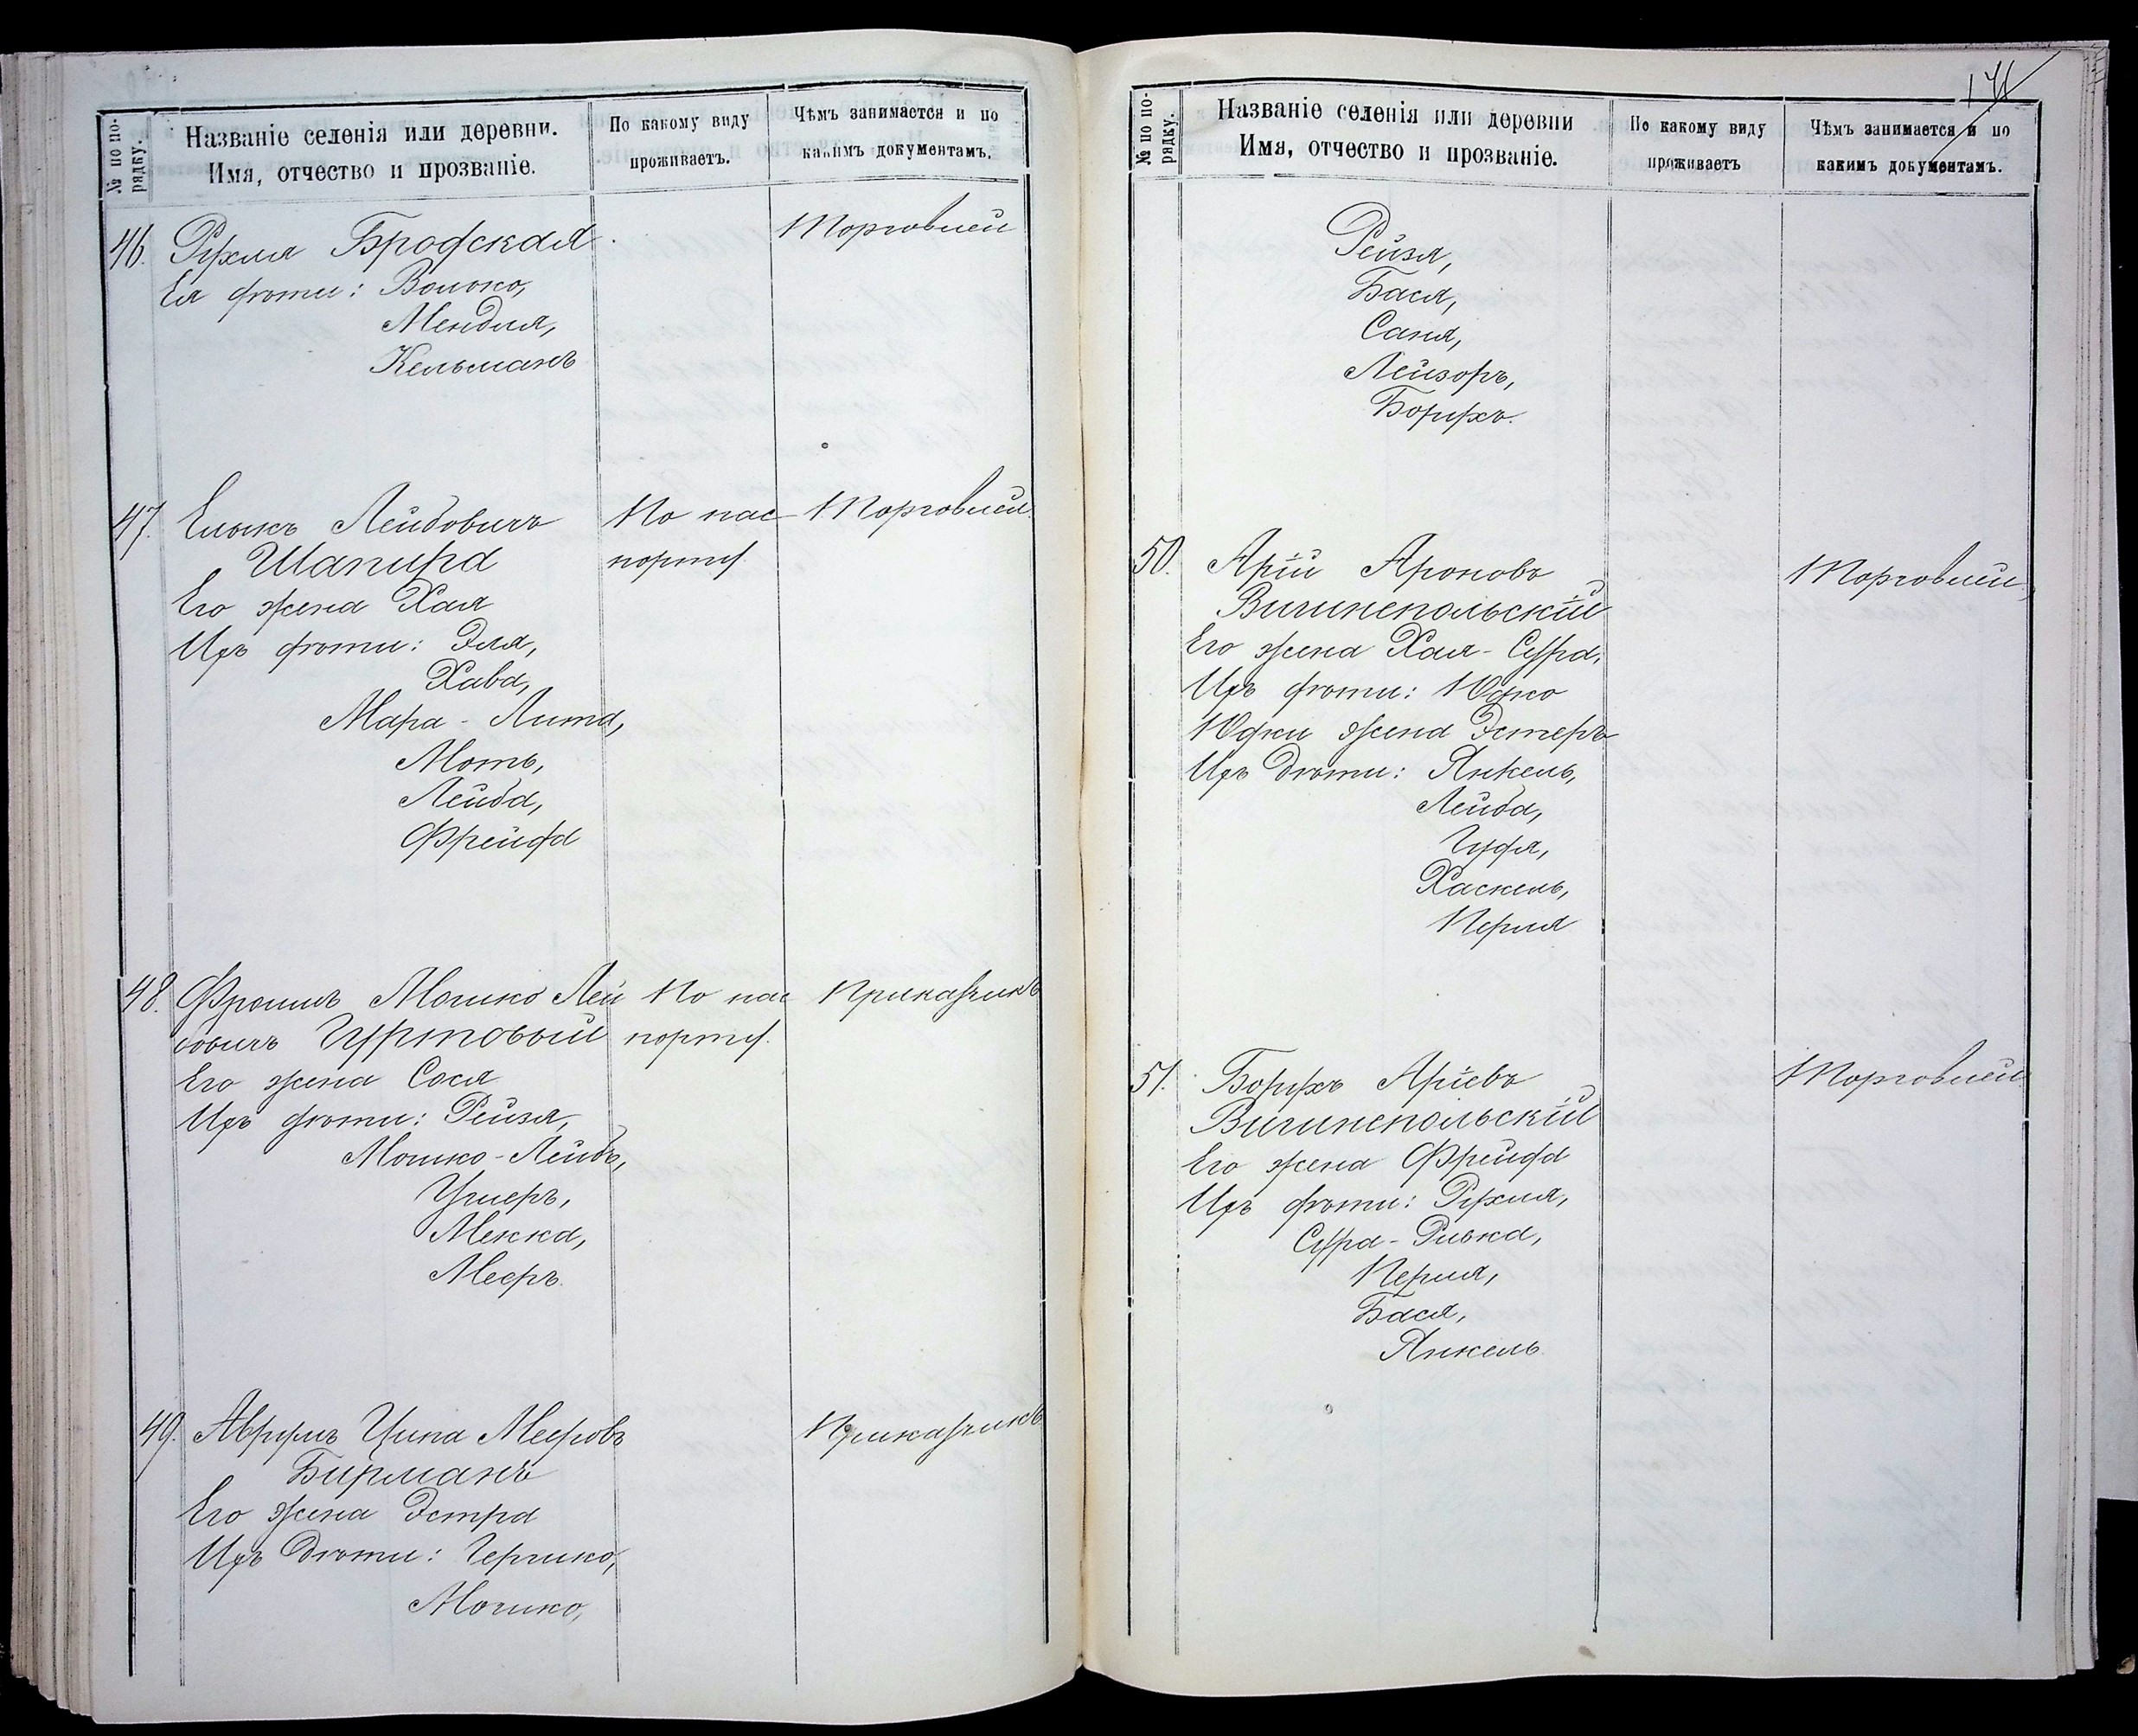 № по по-
рядку.
Названіе селенія или деревни.
Имя, отчество и прозваніе.
По какому виду
проживаетъ.
Чѣмъ занимается и по
какимъ документамъ.
46. Рухля Бродская Торговлей
Ея дѣти: Волько,
Мендля,
Кельманъ
47. Лейбовичъ По пас- Торговлей
Шапира порту.
Его жена Хая
Ихъ дѣти: Эля,
Хава,
Мара - Лита,
Моть,
Лейба,
Фрейда
48. Фроимъ Мошко Лей По пас Приказчикъ
бовичъ Гуртовый порту.
Его жена Сося
Ихъ дѣти: Рейзя,
Мошко-Лейбъ,
Ушеръ,
Меккa,
Меер.
49. Аврумъ Цина Мееровъ Приказчикъ
Бирманъ
Его жена Эстра
Ихъ дѣти: Гершко,
Мошко,
171
№ по по-
рядку.
Названіе селенія или деревни
Имя, отчество и прозваніе.
По какому виду
проживаетъ
Чѣмъ занимается и по
какимъ документамъ.
Рейзя,
Бася,
Саня,
Лейзоръ,
Борухъ.
50. Арій Ароновъ Торговлей
Вишнепольскій
Его жена Хая-Сура,
Ихъ дѣти: Юдко
Юдки жена Эстеръ
Ихъ дѣти: Янкель,
Лейба,
Гудя,
Хаскель,
Перля
51. Борухъ Аріевъ Торговлей
Вишнепольскій
Его жена Фрейда
Ихъ дѣти: Рухля,
Сура-Ривка,
Перля,
Бася,
Янкель